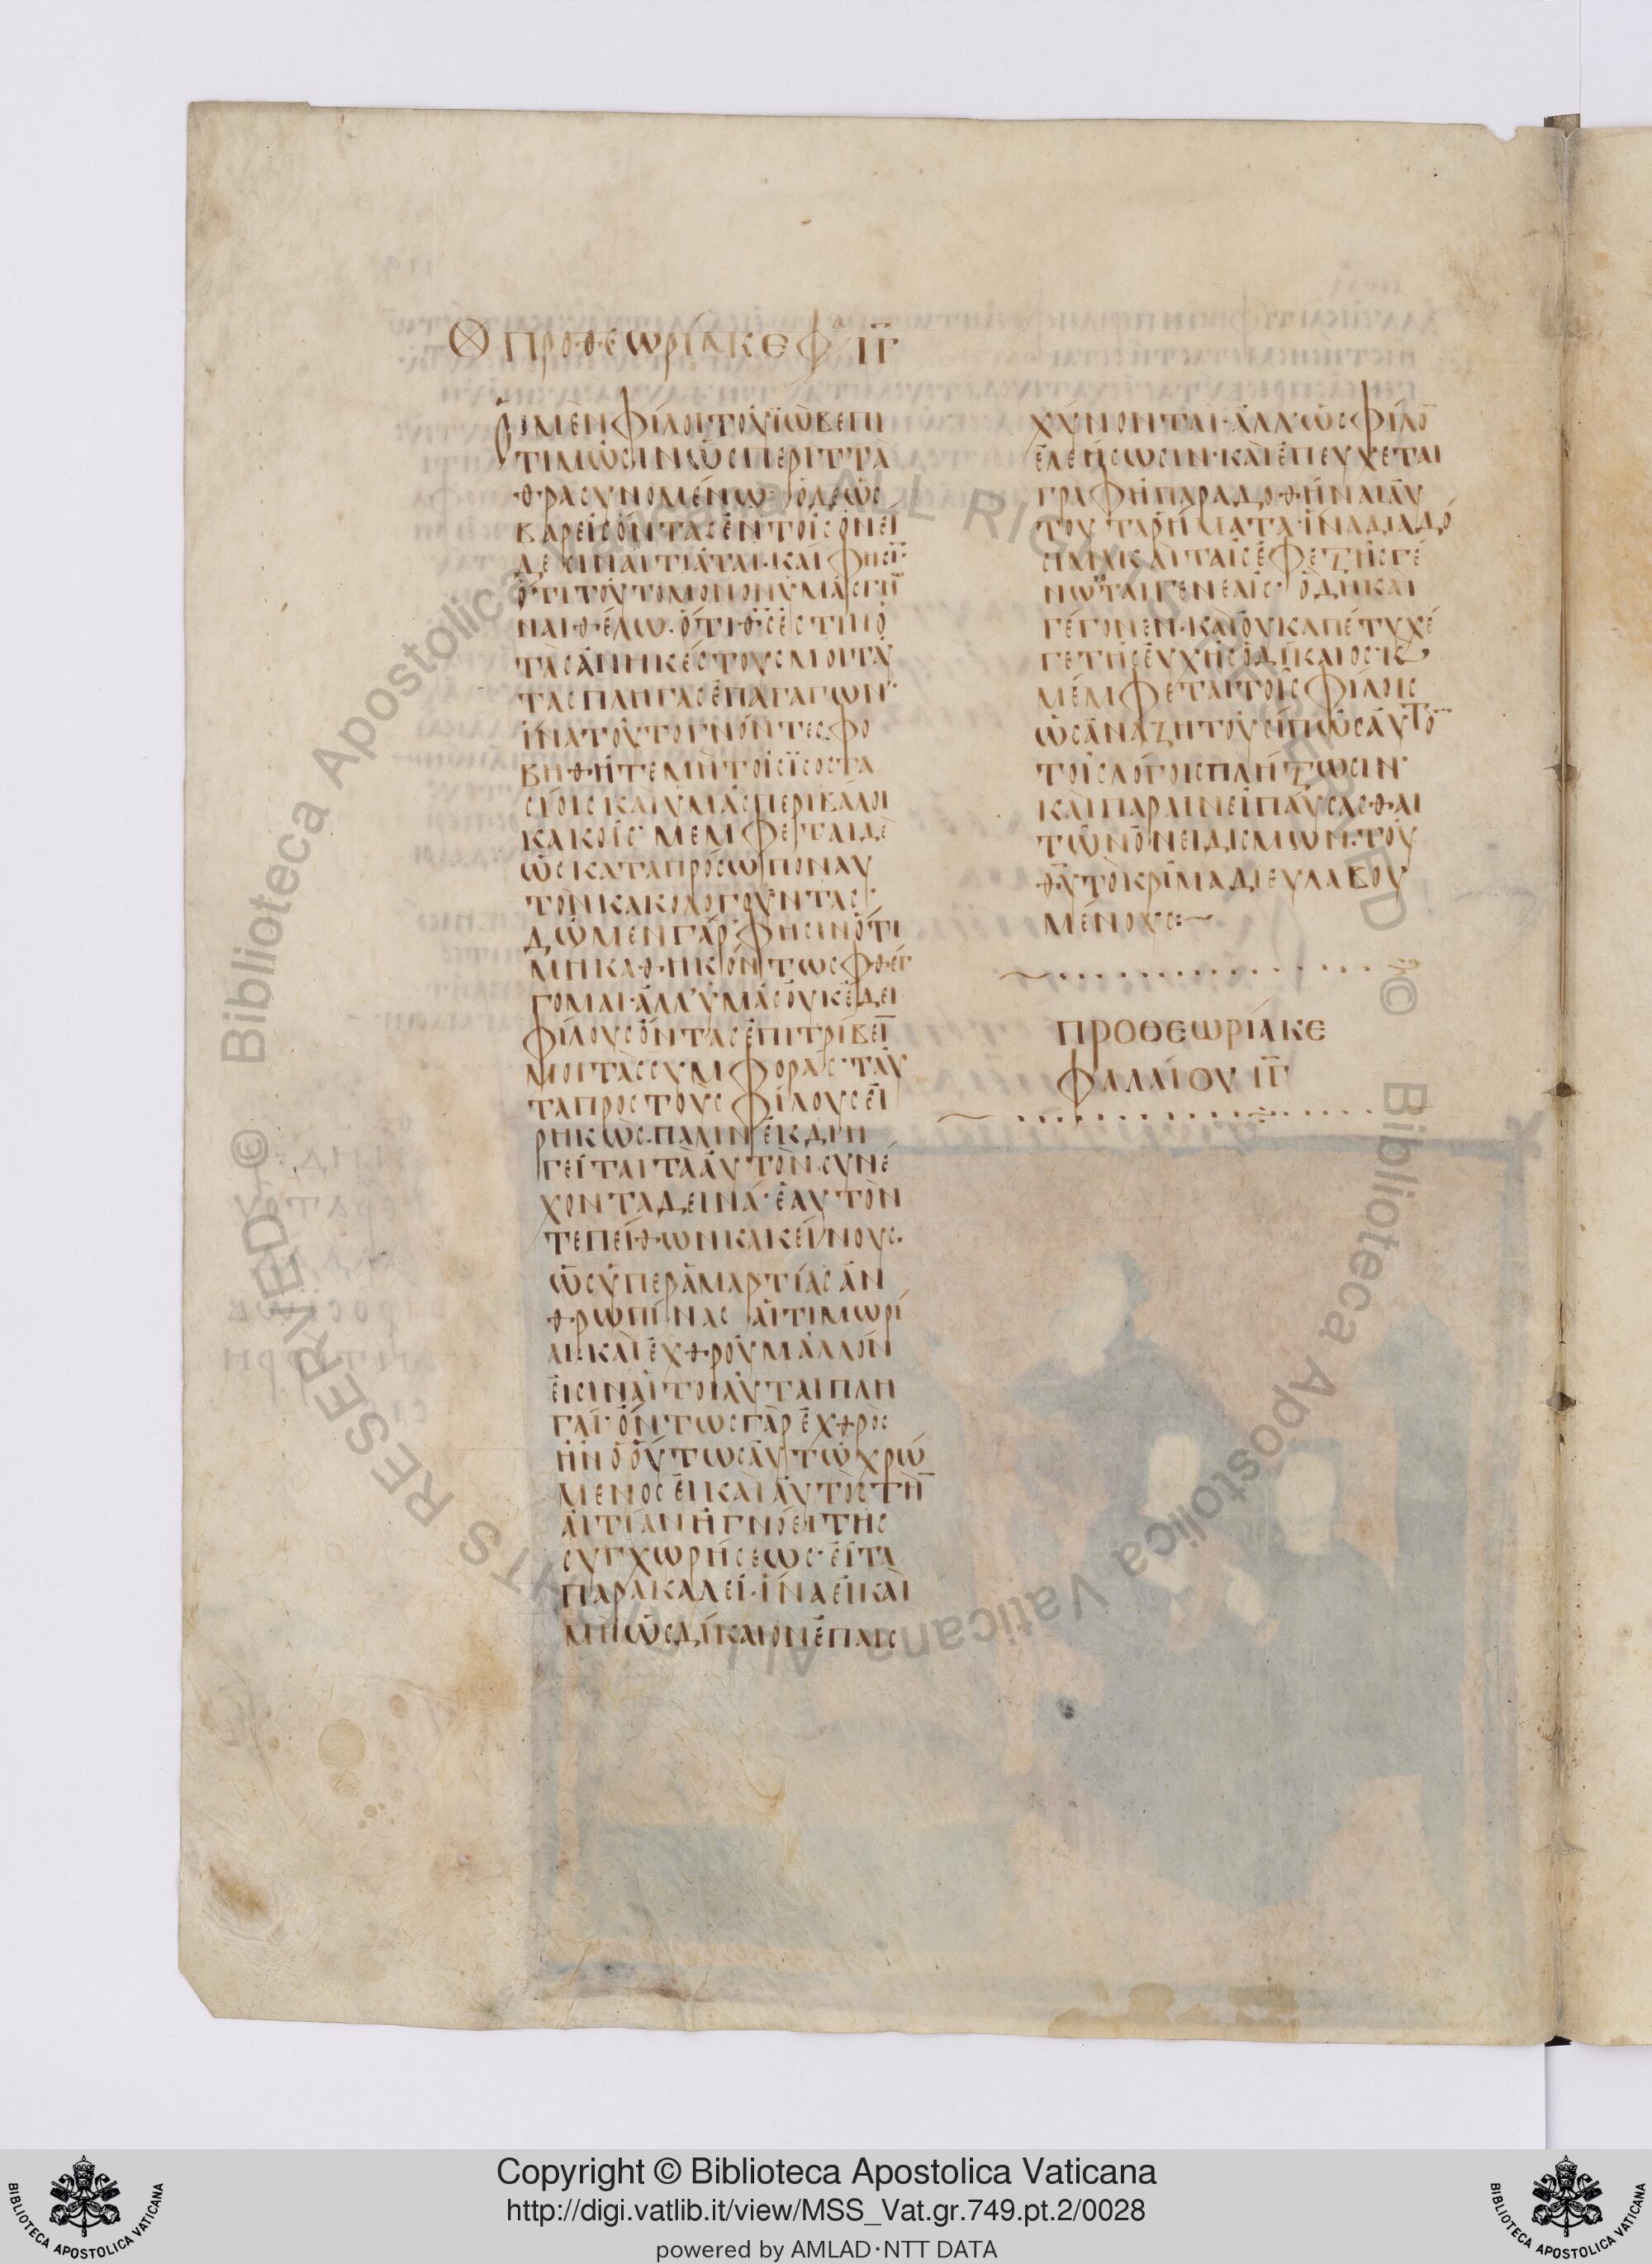 Προθεωρία κεφ ιγ
Οἱ μὲν φίλοι τοῦ ἰὼβ ἐπι
τιμῶσιν ὡς περιττὰ
θρασυνομένω· ὁ δὲ ὡς
βαρεῖς ὄντας ἐν τοῖς ὀνεί
δεσιν αἰτιᾶται· καί φησι
ὅτι τοῦτο μόνον ὑμᾶς γν
ναι θέλω· ὅτι θς ἐστιν ὁ
τὰς ἀνηκέστους μοι ταύ
τας πληγὰς ἐπαγαγών·
ἵνα τοῦτο γνόντες φο
βηθῆτε μὴ τοῖς ἴσοις τα
κακοῖς· μέμφεται δὲ
ὡς κατὰ πρόσωπον αυ
τὸν κακολογοῦντας·
δῶμεν γάρ φησιν ὅτι
μὴ καθηκόντως φθέγ
γομαι· ἀλλ' ὑμᾶς οὐκ ἔδει
φίλους ὄντας ἐπιτρίβει
μοι τὰς συμφοράς· ταῦ
τα πρὸς τοὺς φίλους εἰ
ρηκὼς· πάλιν ἐκδιη
γεῖται τὰ αὐτὸν συνέ
χοντα δεινά· ἑαυτόν
τε πείθων κἀκείνους·
ὡς ὑπὲρ ἁμαρτίας ἀν
θρωπίνας αἱ τιμωρί
αι· καὶ ἐχθροῦ μᾶλλόν
εἰσιν αἱ τοιαῦται πλη
γαί· ὄντως γὰρ ἐχθρὸς
ἦν ὁ οὕτως αὐτῶ χρώ
μενος εἰ καὶ αὐτὸς τὴ
αἰτίαν ἠγνόει τῆς
συγχωρήσεως· εἶτα
παρακαλεῖ· ἵνα εἰ καὶ
μὴ ὡς δίκαιον ἐπαισ
χύνονται· ἀλλ' ὡς φίλο
ἐλεήσωσιν· καὶ ἐπεύχεται
γραφῆ παραδοθῆναι αὐ
τοῦ τὰ ρήματα· ἵνα διαδό
σιμα καὶ ταῖς ἐφεξῆς γέ
νωται γενεαῖς· ὃ δὴ καὶ
γέγονεν· καὶ οὐκ ἀπέτυχέ
γε τῆς εὐχῆς ὁ δίκαιος· κ
μέμφεται τοῖς φίλοις
ὡς ἀναζητοῦσι πῶς αὐτο
τοῖς λόγοις πλήξωσιν·
καὶ παραινεῖ παύσασθαι
τῶν ὀνειδισμῶν· τοῦ
θυ τὸ κρίμα διευλαβου
μένους:
ΠΡΟΘΕωΡΙΑ ΚΕ
ΦΑΛΑΙΟΥ ΙΓ
© Biblioteca Apostolica Vaticana ALL RIGHTS RESERVED
Copyright © Biblioteca Apostolica Vaticana
http://digi.vatlib.it/view/MSS_Vat.gr.749.pt.2/0028
powered by AMLAD·NTT DATA
BIBLIOTECA APOSTOLICA VATICANA
BIBLIOTECA APOSTOLICA VATICANA